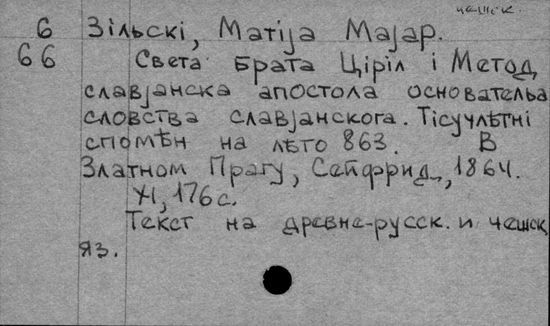 чешск.
6 Зільскі, Матіjа Маjар.
66 Света брата Ціріл і Метод,
славjанска апостола основательа
словства славjанскога. Тісучлѣтні
спомѣн на лѣто 863. В
Златном Прагу, Сейфрид, 1864.
XI, 176 с.
Текст на древне-русск. и чешск.
яз.